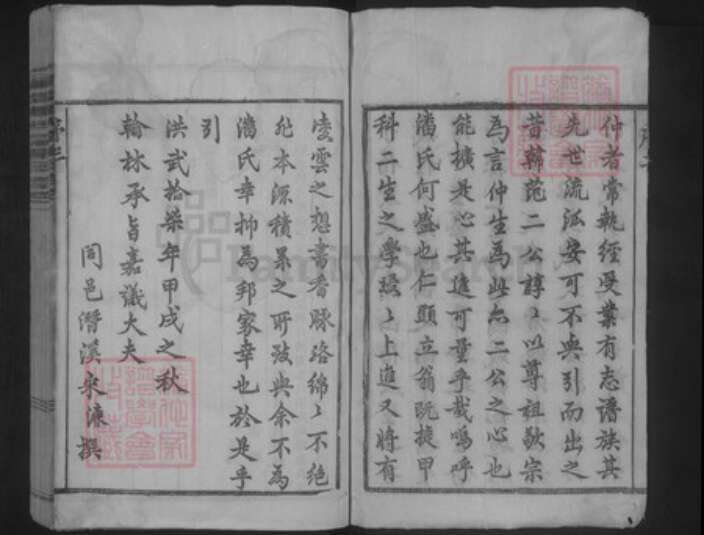 仲者常執經受業有志譜族其
先世流派安可不典引而出之
昔韓范二公諄〻以尊祖敬宗
為言仲生為此亦二公之心也
能擴是心其進可量乎哉嗚呼
潘氏何盛也仁顯立翁既捷甲
科二生之學駸〻上進又將有
凌雲之想書香脉洛綿〻不絕
非本源積累之所致與余不為
潘氏幸抑為邦家幸也於是乎
引
洪武拾柒年甲戌之秋
翰林承旨嘉議大夫
同邑潛溪宋濂撰
FamilySearch